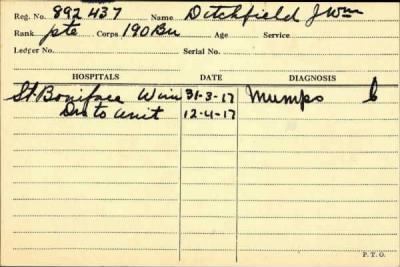 Reg. No. 892437 Name Ditchfield J Wm
Rank pte Corps 190 Bn Age Service
Ledger No. Serial No.
HOSPITALS DATE DIAGNOSIS
St. Boniface Winn 31-3-17 Mumps
Dis to Unit 12-4-17
P. T. O.